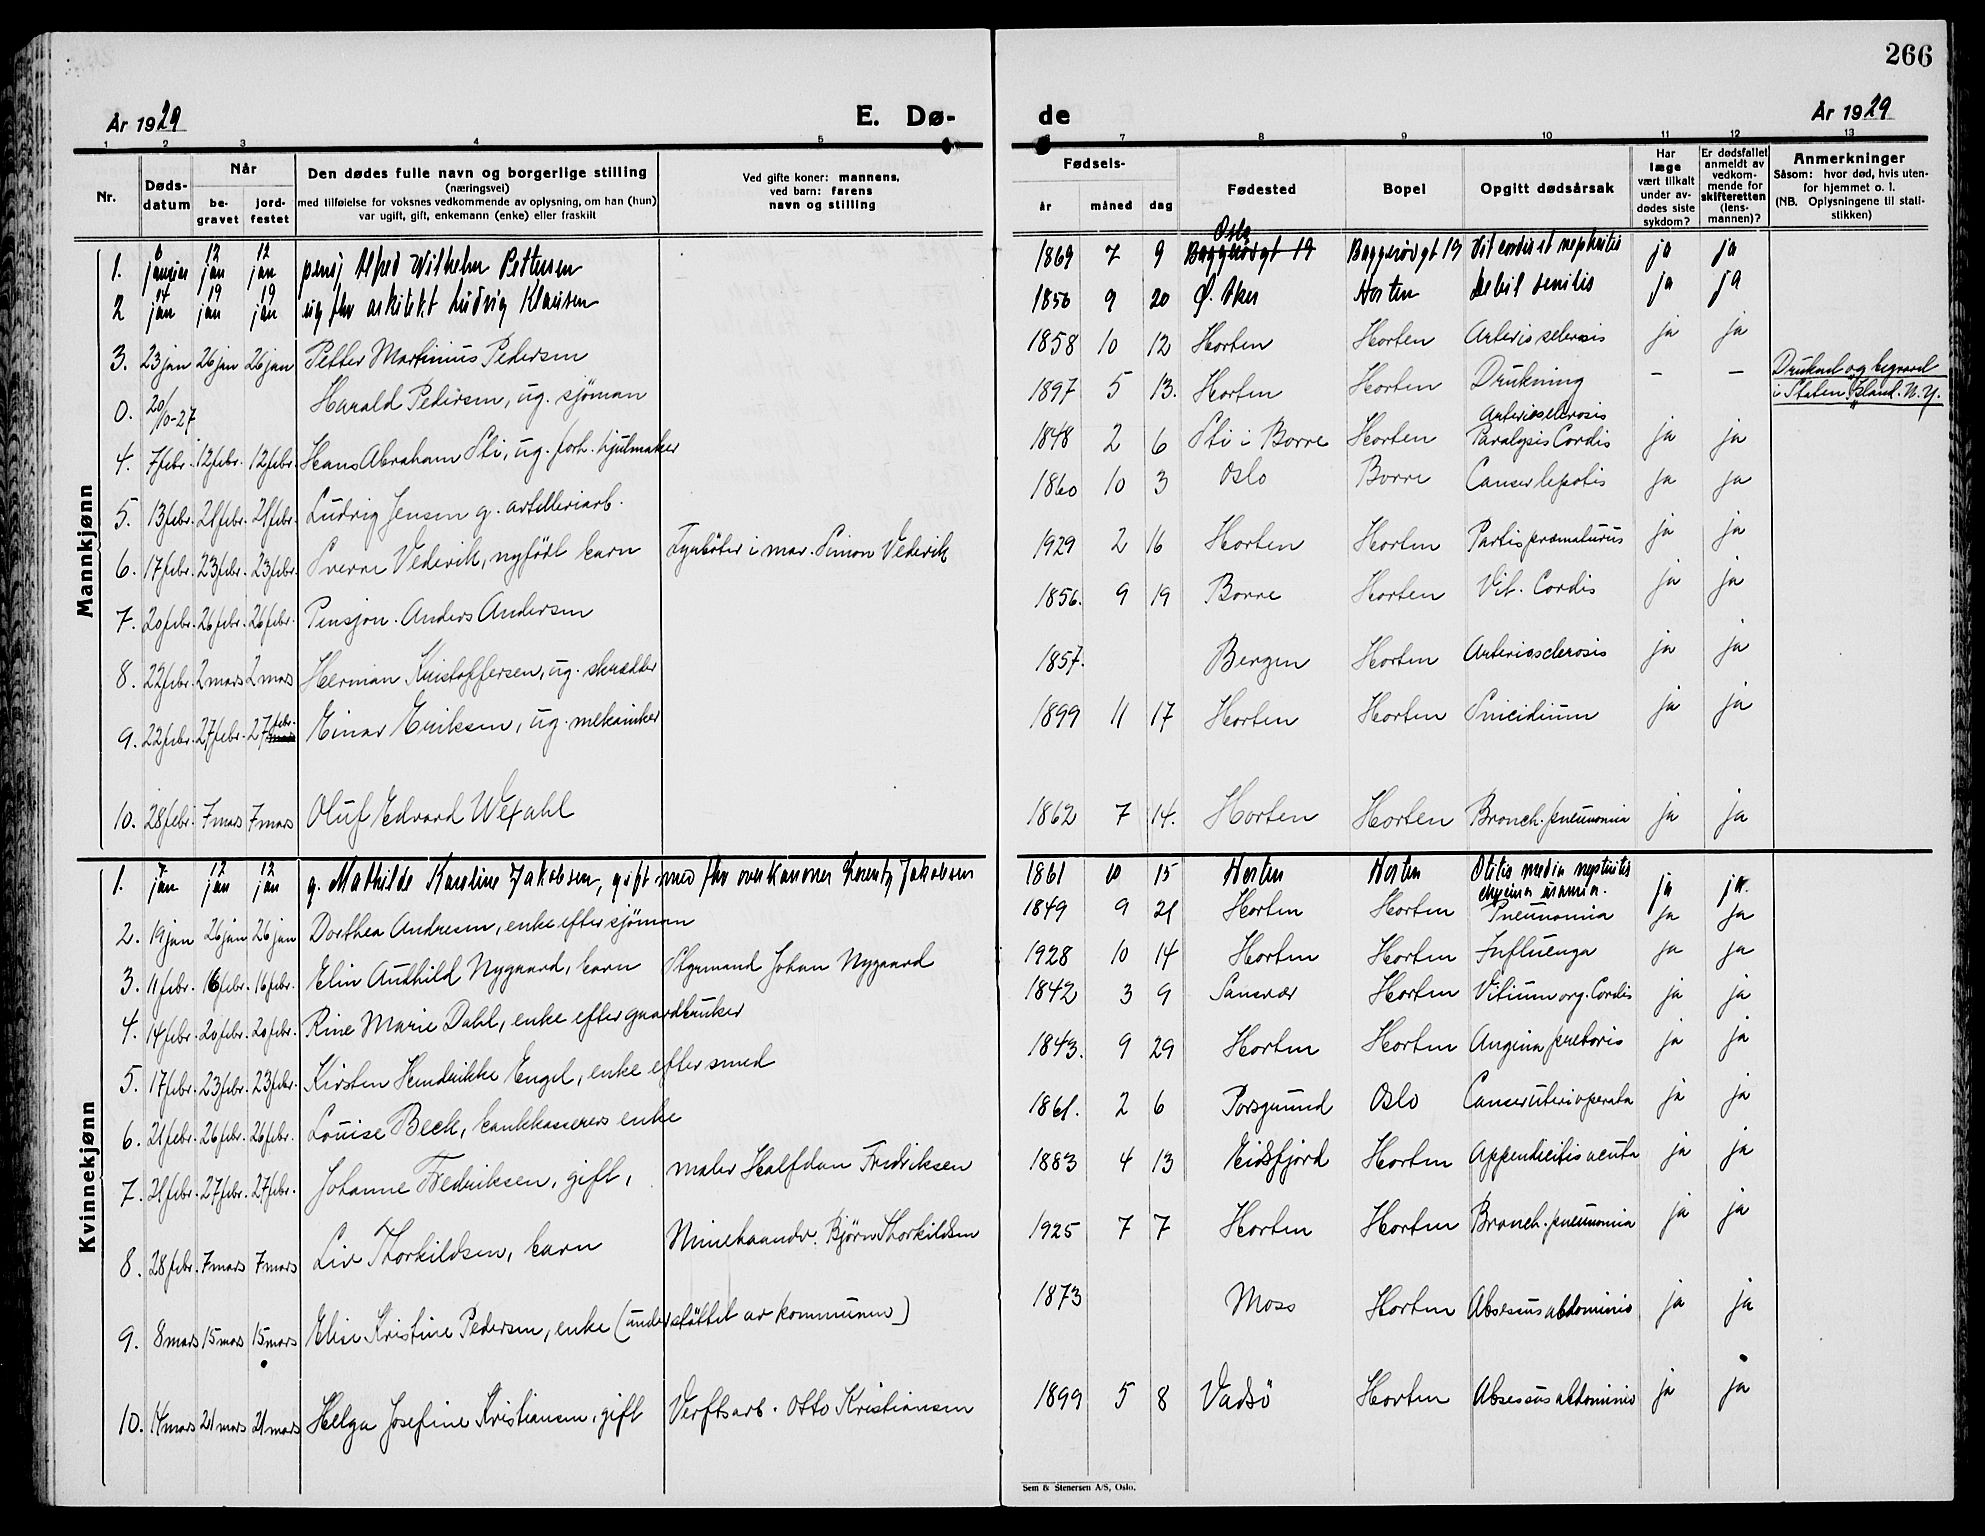 266
År 1929 E. Dø- de År 1929
1 2 3 4 5 6 7 8 9 10 11 12 13
Nr. Døds-datum Når be-gravet jord-festet Den dødes fulle navn og borgerlige stilling (næringsvei) med tilføielse for voksnes vedkommende av oplysning, om han (hun) var ugift, gift, enkemann (enke) eller fraskilt Ved gifte koner: mannens, ved barn: farens navn og stilling Fødsels- år måned dag Fødested Bopel Opgitt dødsårsak Har læge vært tilkalt under av-dødes siste sykdom? Er dødsfallet anmeldt av vedkom-mende for skifteretten (lens-mannen)? Anmerkninger Såsom: hvor død, hvis uten-for hjemmet o. l. (NB. Oplysningene til stati-stikken)
Mannkjønn
1. 6 januar 12 jan 12 jan pensj Alfred Wilhelm Pettersen 1869 7 9 Oslo Baggerødgt 19 Baggerødgt 19 Vit cordis et nephritis ja ja
2 14 jan 19 jan 19 jan ug fhv arkitekt Ludvig Klausen 1856 9 20 Ø. Aker Horten Debil senilis ja ja
3. 23 jan 26 jan 26 jan Petter Martinius Pedersen 1858 10 12 Horten Horten Arterio sclerosis ja ja
0. 20/10-27 Harald Pedersen, ug. sjöman 1897 5 13. Horten Horten Drukning - - Druknet og begravet i Staten Island. N.Y.
4. 7 febr. 12 febr. 12 febr. Hans Abraham Sti, ug. forh. hjulmaker 1848 2 6 Sti i Borre Horten Arteriosclerosis Paralysis Cordis ja ja
5. 13 febr. 21 febr. 21 febr. Ludvig Jensen g. artilleriarb. 1860 10 3 Oslo Borre Cancer hepatis ja ja
6. 17 febr. 23 febr. 23 febr. Sverre Vedvik, nyfödt barn Fyrböter i mar. Simon Vedvik 1929 2 16 Horten Horten Partis præmaturus ja ja
7. 20 febr. 26 febr. 26 febr. Pensjon. Anders Andersen 1856. 9 19 Borre Horten Vit. Cordis ja ja
8. 22 febr. 2 mars 2 mars Herman Kristoffersen, ug. skrædder 1857. Bergen Horten Arteriosclerosis ja ja
9. 22 febr. 27 febr. 27 febr. Einar Eriksen, ug. mekaniker 1899 11 17 Horten Horten Suicidium ja ja
10. 28 febr. 7 mars 7 mars Oluf Edvard Wexahl 1862 7 14. Horten Horten Bronch. pneumonia ja ja
Kvinnekjønn
1. 7 jan 12 jan 12 jan g. Mathilde Karoline Jakobsen, gift med fhv overkanoner Lorentz Jakobsen 1861 10 15 Horten Horten Otitis media nephritis uræmia. ja ja
2. 19 jan 26 jan 26 jan Dorthea Andresen, enke efter sjöman 1849 9 21 Horten Horten Pneumonia ja ja
3. 11 febr. 16 febr. 16 febr. Elin Authild Nygaard, barn Styrmand Johan Nygaard 1928 10 14 Horten Horten Influenza ja ja
4. 14 febr. 20 febr. 20 febr. Rine Marie Dahl, enke efter gaardbruker 1842 3 9 Horten Vitium org. Cordis ja ja
5. 17 febr. 23 febr. 23 febr. Kirsten Hendrikke Engel, enke efter smed 1843. 9 29 Horten Horten Angina pectoris ja ja
6. 21 febr. 26 febr. 26 febr. Louise Beck, bankkasserers enke 1861. 2 6 Porsgrund Oslo Cancer uteri operata ja ja
7. 21 febr. 27 febr. 27 febr. Johanne Fredriksen, gift, maler Halfdan Fredriksen 1883 4 13 Eidsfjord Horten Appendicitis acuta ja ja
8. 28 febr. 7 mars 7 mars Liv Thorkildsen, barn Minehaandv. Bjørn Thorkildsen 1925 7 7 Horten Horten Bronch. pneumonia ja ja
9. 8 mars 15 mars 15 mars Elise Kristine Pedersen, enke (understöttet av kommunen) 1873 Moss Horten Absessus abdominis ja ja
10. 14 mars 21 mars 21 mars Helga Josefine Kristiansen, gift Verftsarb. Otto Kristiansen 1899 5 8 Vadsö Horten Absessus abdominis ja ja
Sem & Stenersen A/S, Oslo.